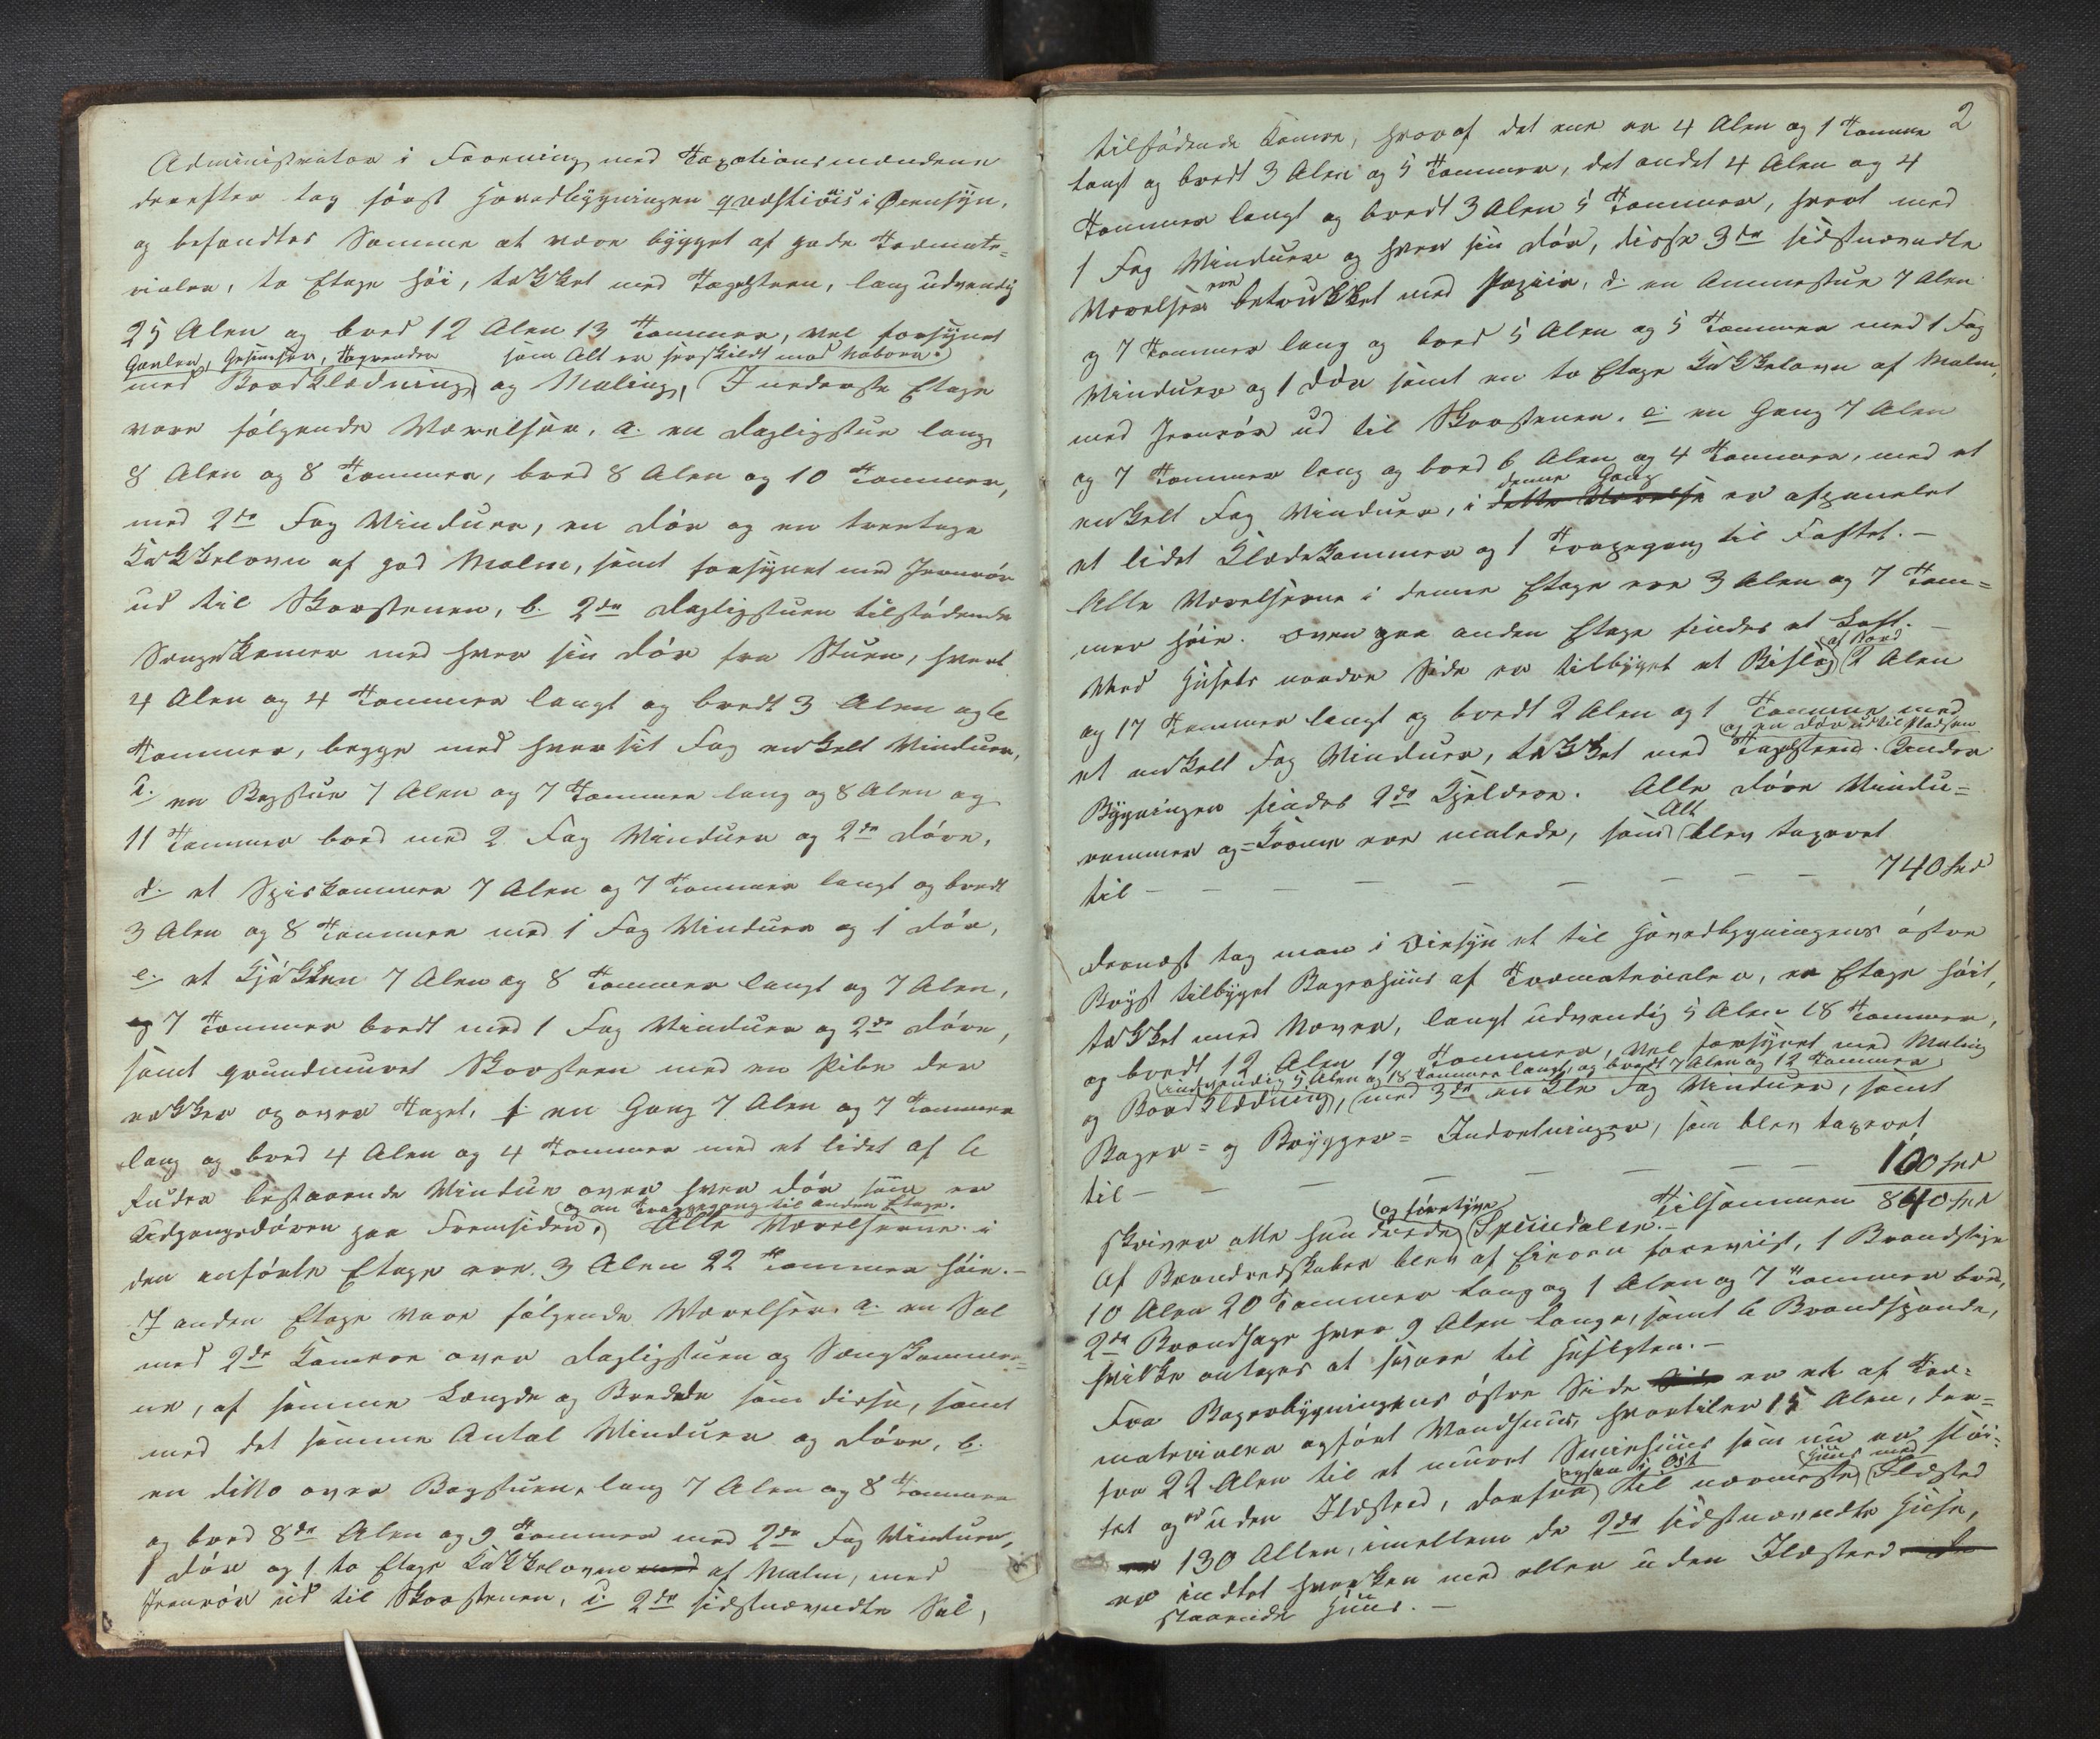 Administrator i Foreening med Taxationsmændene
derefter tog først Hovedbygningen qvæstiøis i Øiensÿn,
og befandtes Samme at være bÿgget af gode Træmate-
rialer, to Etage høi, tækket med Tagsteen, lang udvendig
25 Alen og bred 12 Alen 13 Tommer, vel forsÿnet
Gavler, Gesimser, Tagrender som Alt er forskildt mod Naboen.
med Bordklædning og Maling, I nederste Etage
vare følgende Værelser, a. en Dagligstue lang
8 Alen og 8 Tommer, bred 8 Alen og 10 Tommer,
med 2de Fag Vinduer, en Dør og en toetage
Kakkelovn af god Malm, samt forsÿnet med Jernrør
ud til Skorstenen, b. 2de Dagligstuen tilstødende
Sengekamer med hver sin Dør fra Stuen, hvert
4 Alen og 4 Tommer langt og bredt 3 Alen og 6
Tommer, begge med hver sit Fag enkelt Vinduer,
c. en Bagstue 7 Alen og 7 Tommer lang og 8 Alen og
11 Tommer bred med 2 Fag Vinduer og 2de Døre,
d. et Spiskammer 7 Alen og 7 Tommer langt og bredt
3 Alen og 8 Tommer med 1 Fag Vinduer og 1 Dør,
e. et Kjøkken 7 Alen og 8 Tommer langt og 7 Alen,
og 7 Tommer bredt med 1 Fag Vinduer og 2de Døre,
samt grundmuret Skorsteen med en Pibe der
rækker op over Taget, f. en Gang 7 Alen og 7 Tommer
lang og bred 4 Alen og 4 Tommer med et lidet af 6
Ruder bestaaende Vindue over hver Dør som er
og en Trappegang til anden Etage.
Udgangsdøren paa Fremsiden. Alle Værelserne i
den anførte Etage ere 3 Alen 22 Tommer høie.-
I anden Etage vare følgende Værelser, a. en Sal
med 2de Kamere over Dagligstuen og Sængkamme-
ne, af samme Længde og Bredde som disse, samt
med det samme Antal Vinduer og Døre, b.
en ditto over Bagstuen, lang 7 Alen og 8 Tommer
og bred 8de Alen og 9 Tommer med 2de Fag Vinduer,
1 Dør og 1 to Etage Kakkelovn med af Malm, med
Jernrør ud til Skorstenen, c. 2de sidstnævndte Sal,
2
tilstødende Kamre, hvoraf det ene er 4 Alen og 1 Tomme
langt og bredt 3 Alen og 5 Tommer, det andet 4 Alen og 4
Tommer langt og bredt 3 Alen 5 Tommer, hvert med
1 Fag Vinduer og hver sin Dør, disse 3de sidstnævndte
Værelser ere betrukket med Papiir, d. en Ammestue 7 Alen
og 7 Tommer lang og bred 5 Alen og 5 Tommer med 1 Fag
Vinduer og 1 Dør samt en to Etage Kakkelovn af Malm,
med Jernrør ud til Skorstenen. e. en Gang 7 Alen
og 7 Tommer lang og bred 6 Alen og 4 Tommer, med et
denne Gang
enkelt Fag Vinduer, i dette Værelse er afpanelet
et lidet Klædekammer og 1 Trapegang til Loftet.-
Alle Værelserne i denne Etage ere 3 Alen og 7 Tom-
mer høie. Oven paa anden Etage findes et Loft.-
af Bord
Ved Husets nordre Side er tilbÿget et Bislag 2 Alen
og 17 Tommer langt og bredt 2 Alen og 1 Tomme med
og en Dør ud til Pladsen
et enkelt Fag Vinduer, tækket med Tagsteen. Under
Bÿgningen findes 2de Kjeldere. Alle Døre Vindu-
Alt
rammer og-Karme ere malede, som blev taxeret
til - - - - - - - 740 Spd
Dernæst tog man i Øiesÿn et til Hovedbygningens østre
Brÿst tilbÿget Bagerhuus af Træmaterialer, en Etage høit,
tækket med Næver, langt udvendig 5 Alen 18 Tommer,
og bredt 12 Alen 19 Tommer, vel forsÿnet med Maling
indvendig 5 Alen og 18 Tommer langt, og bredt 7 Alen og 12 Tommer
og Bordklædning, med 3de enkle Fag Vinduer, samt
Bager- og Brÿgger- Indretninger, som blev taxeret
til - - - - - - 100 Spd
Tilsammen 840 Spd
og førretÿve
skriver otte hundrede Speciedaler.-
Af Brandredskaber blev af Eieren foreviist, 1 Brandstige
10 Alen 20 Tommer lang og 1 Alen og 7 Tommer bred,
2de Brandhage hver 9 Alen lange, samt 6 Brandspande,
hvilke antages at svare til Hensigten.-
Fra Bagerbÿgningens østre Side Side er et af Træ-
materialer opført Vandhuus, hvortil er 15 Alen, der-
fra 22 Alen til et muret Smiehuus som nu er sløi-
ogsaa i Øst Huus med
fet og er uden Ildsted, derfra til nærmeste Ildsted
er 130 Allen, imellem de 2de sidstnævndte Huse,
er indtet hverken med eller uden Ildsteed
staaende Huus.-